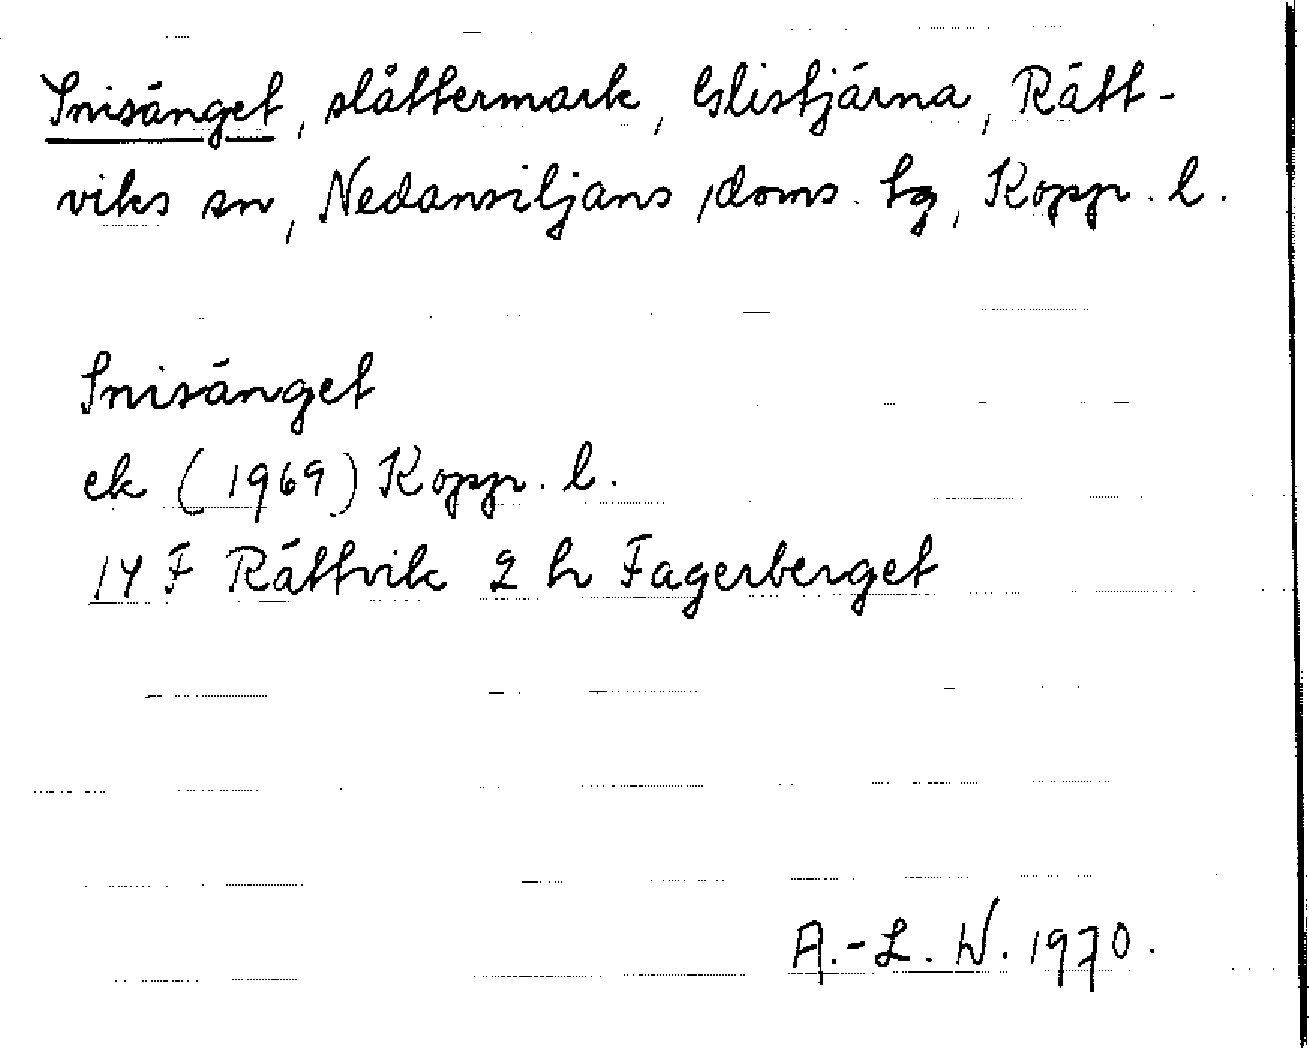 Snisänget, slåttermark, Glistjärna, Rätt-
viks sn, Nedansiljans doms. hg, Kopp. l.
Snisänget
ek (1969) Kopp. l.
14 F Rättvik 2 h Fagerberget
A.-L. W. 1970.